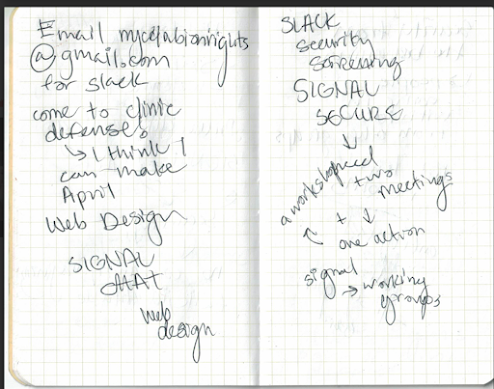 Email
@gmail.com
for slack
come to clinic
defense!
↳ I think I
can make
April
Web Design
SIGNAL
CHAT
Web
design
SLACK
security
screening
SIGNAL
SECURE
↓
need
a workshop + two
meetings
↑ + ↓
one action
signal
→ working
groups